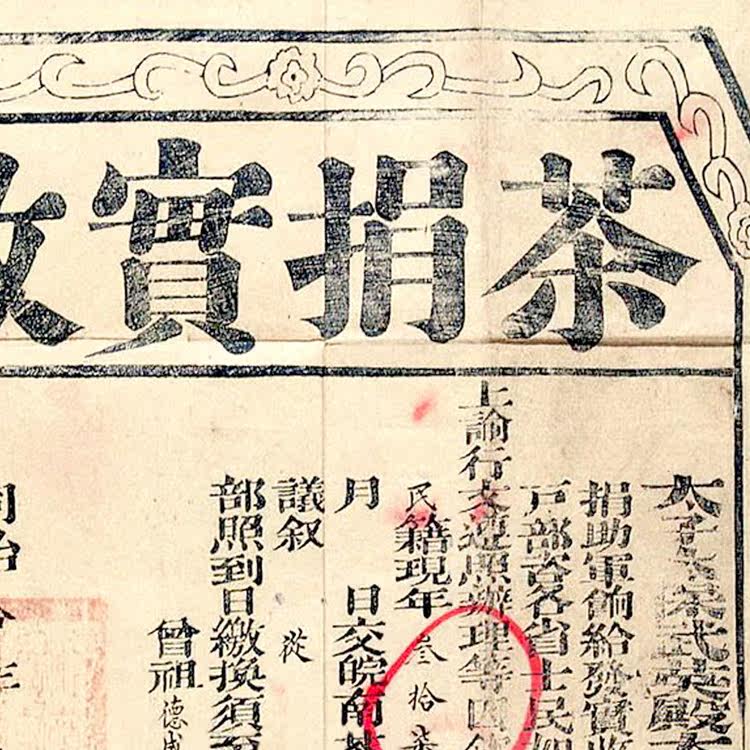 茶捐實收
太子
捐助軍餉給發實收
戶部咨各省士民如
上諭行文遵照辦理等因
民籍現年叁拾柒
月 日交皖南茶
議叙 從
部照到日繳換須至
曾祖德成
同治